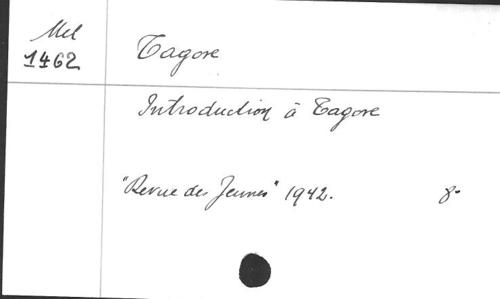 Mel
1462
Tagore
Introduction à Tagore
"Revue des Jeunes" 1942. 8°